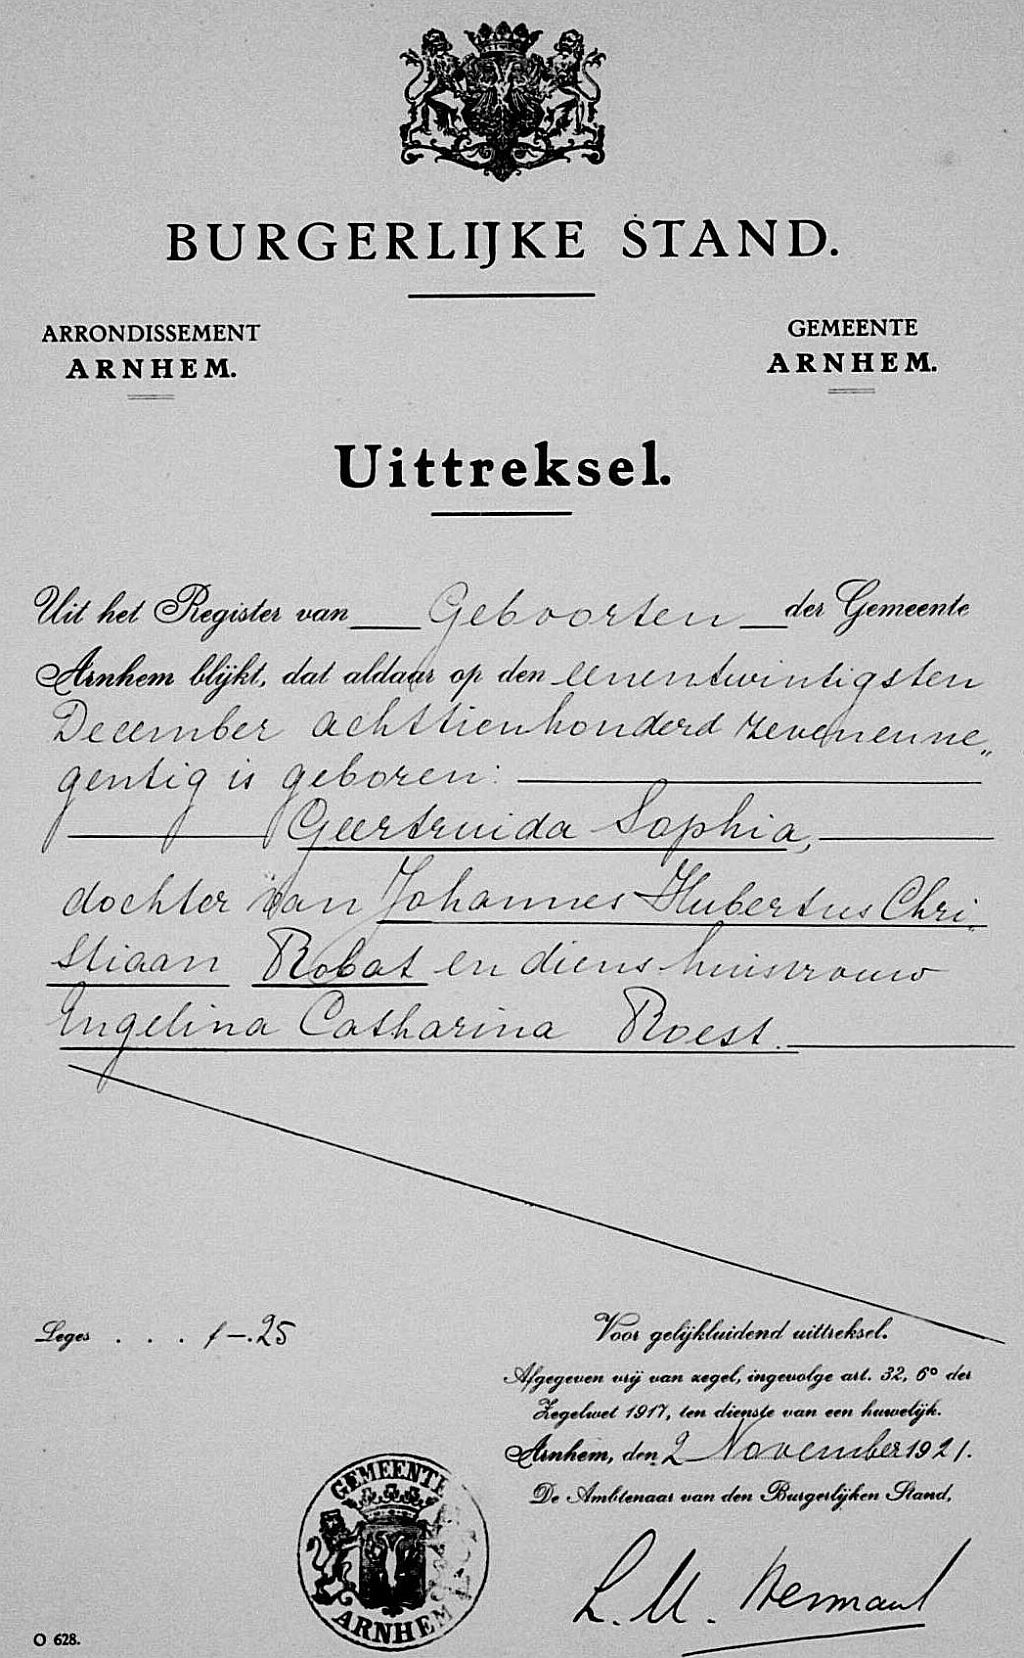 BURGERLIJKE STAND.
ARRONDISSEMENT
ARNHEM.
GEMEENTE
ARNHEM.
Uittreksel.
Uit het Register van Geboorten der Gemeente
Arnhem blijkt, dat aldaar op den eenentwintigsten
December achttienhonderd zevenenne„
gentig is geboren:
Geertruida Sophia,
dochter van Johannes Hubertus Chri„
stiaan Robat en diens huisvrouw
Engelina Catharina Roest.
Leges . . . . f —.25
Voor gelijkluidend uittreksel.
Afgegeven vrij van zegel, ingevolge art. 32, 6° der
Zegelwet 1917, ten dienste van een huwelijk.
Arnhem, den 2 November 1921.
De Ambtenaar van den Burgerlijken Stand,
GEMEENTE
ARNHEM
L. M.
O 628.